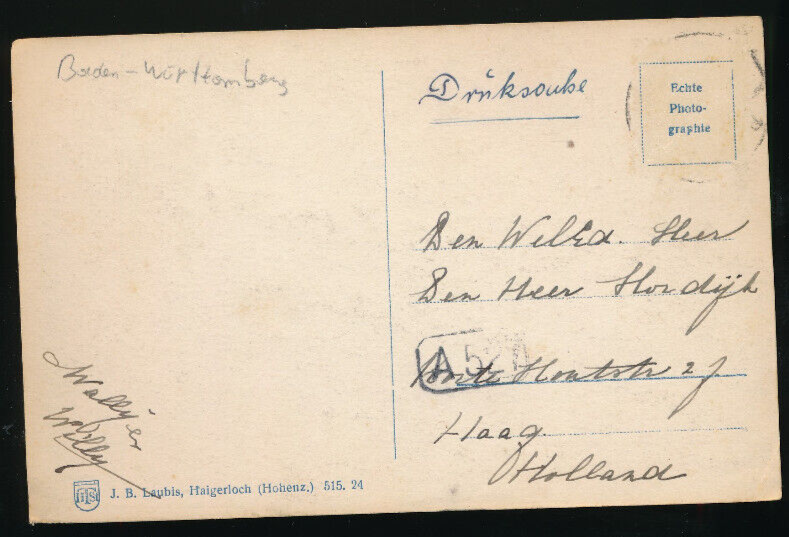 Baden-Württemberg
Drüksache
Echte
Photo-
graphie
Den WelEd. Heer
Den Heer Hordijk
A 52
Korte Houtstr 27
Haag
Holland
Wally en
Willy
J. B. Laubis, Haigerloch (Hohenz.) 515. 24